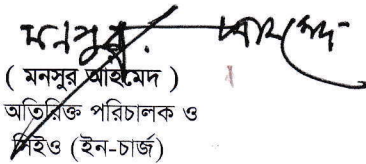 মনসুর আহমেদ
( মনসুর আহমেদ )
অতিরিক্ত পরিচালক ও
সিইও (ইন-চার্জ)